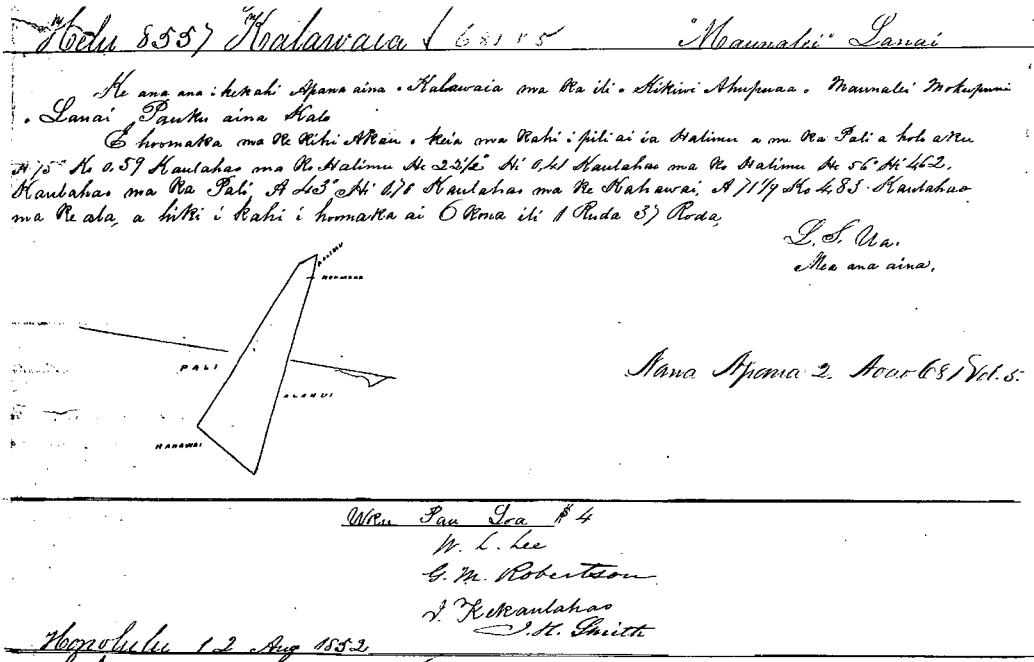 Helu 8557 Kalawaia 681 v 5 "Maunalei" Lanai
Ke ana ana i kekahi Apana aina o Kalawaia ma ka ili o Kikiwi Ahupuaa o Maunalei Mokupuni
o Lanai Pauku aina Kalo
E hoomaka ma ke Kihi Akau o keia ma kahi i pili ai ia Halimu a me ka Pali a holo aku
H 75° Ko 0.59 Kaulahao ma ko Halimu He 22½° Hi 0,41 Kaulahao ma ko Halimu He 56° Hi 4.62.
Kaulahao ma ka Pali, A 43° Hi 0,78 Kaulahao ma ke Kahawai, A 71¼ Ko 4,83. Kaulahao
ma ke ala, a hiki i kahi i hoomaka ai 6 Kona ili 1 Ruda 37 Roda,
L. S. Ua.
Mea ana aina.
PALIMU
PALI
ALANUI
KAHAWAI
Nana Apana 2. Aoao 681 Vol. 5.
Uku Pau Loa $ 4
W. L. Lee
G. M. Robertson
J. Kekaulahao
J. H. Smith
Honolulu 12 Aug 1852